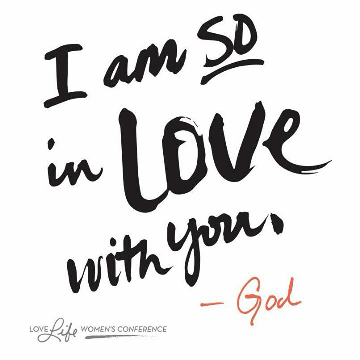 I am so
in Love
with you.
– God
LOVE Life WOMEN'S CONFERENCE